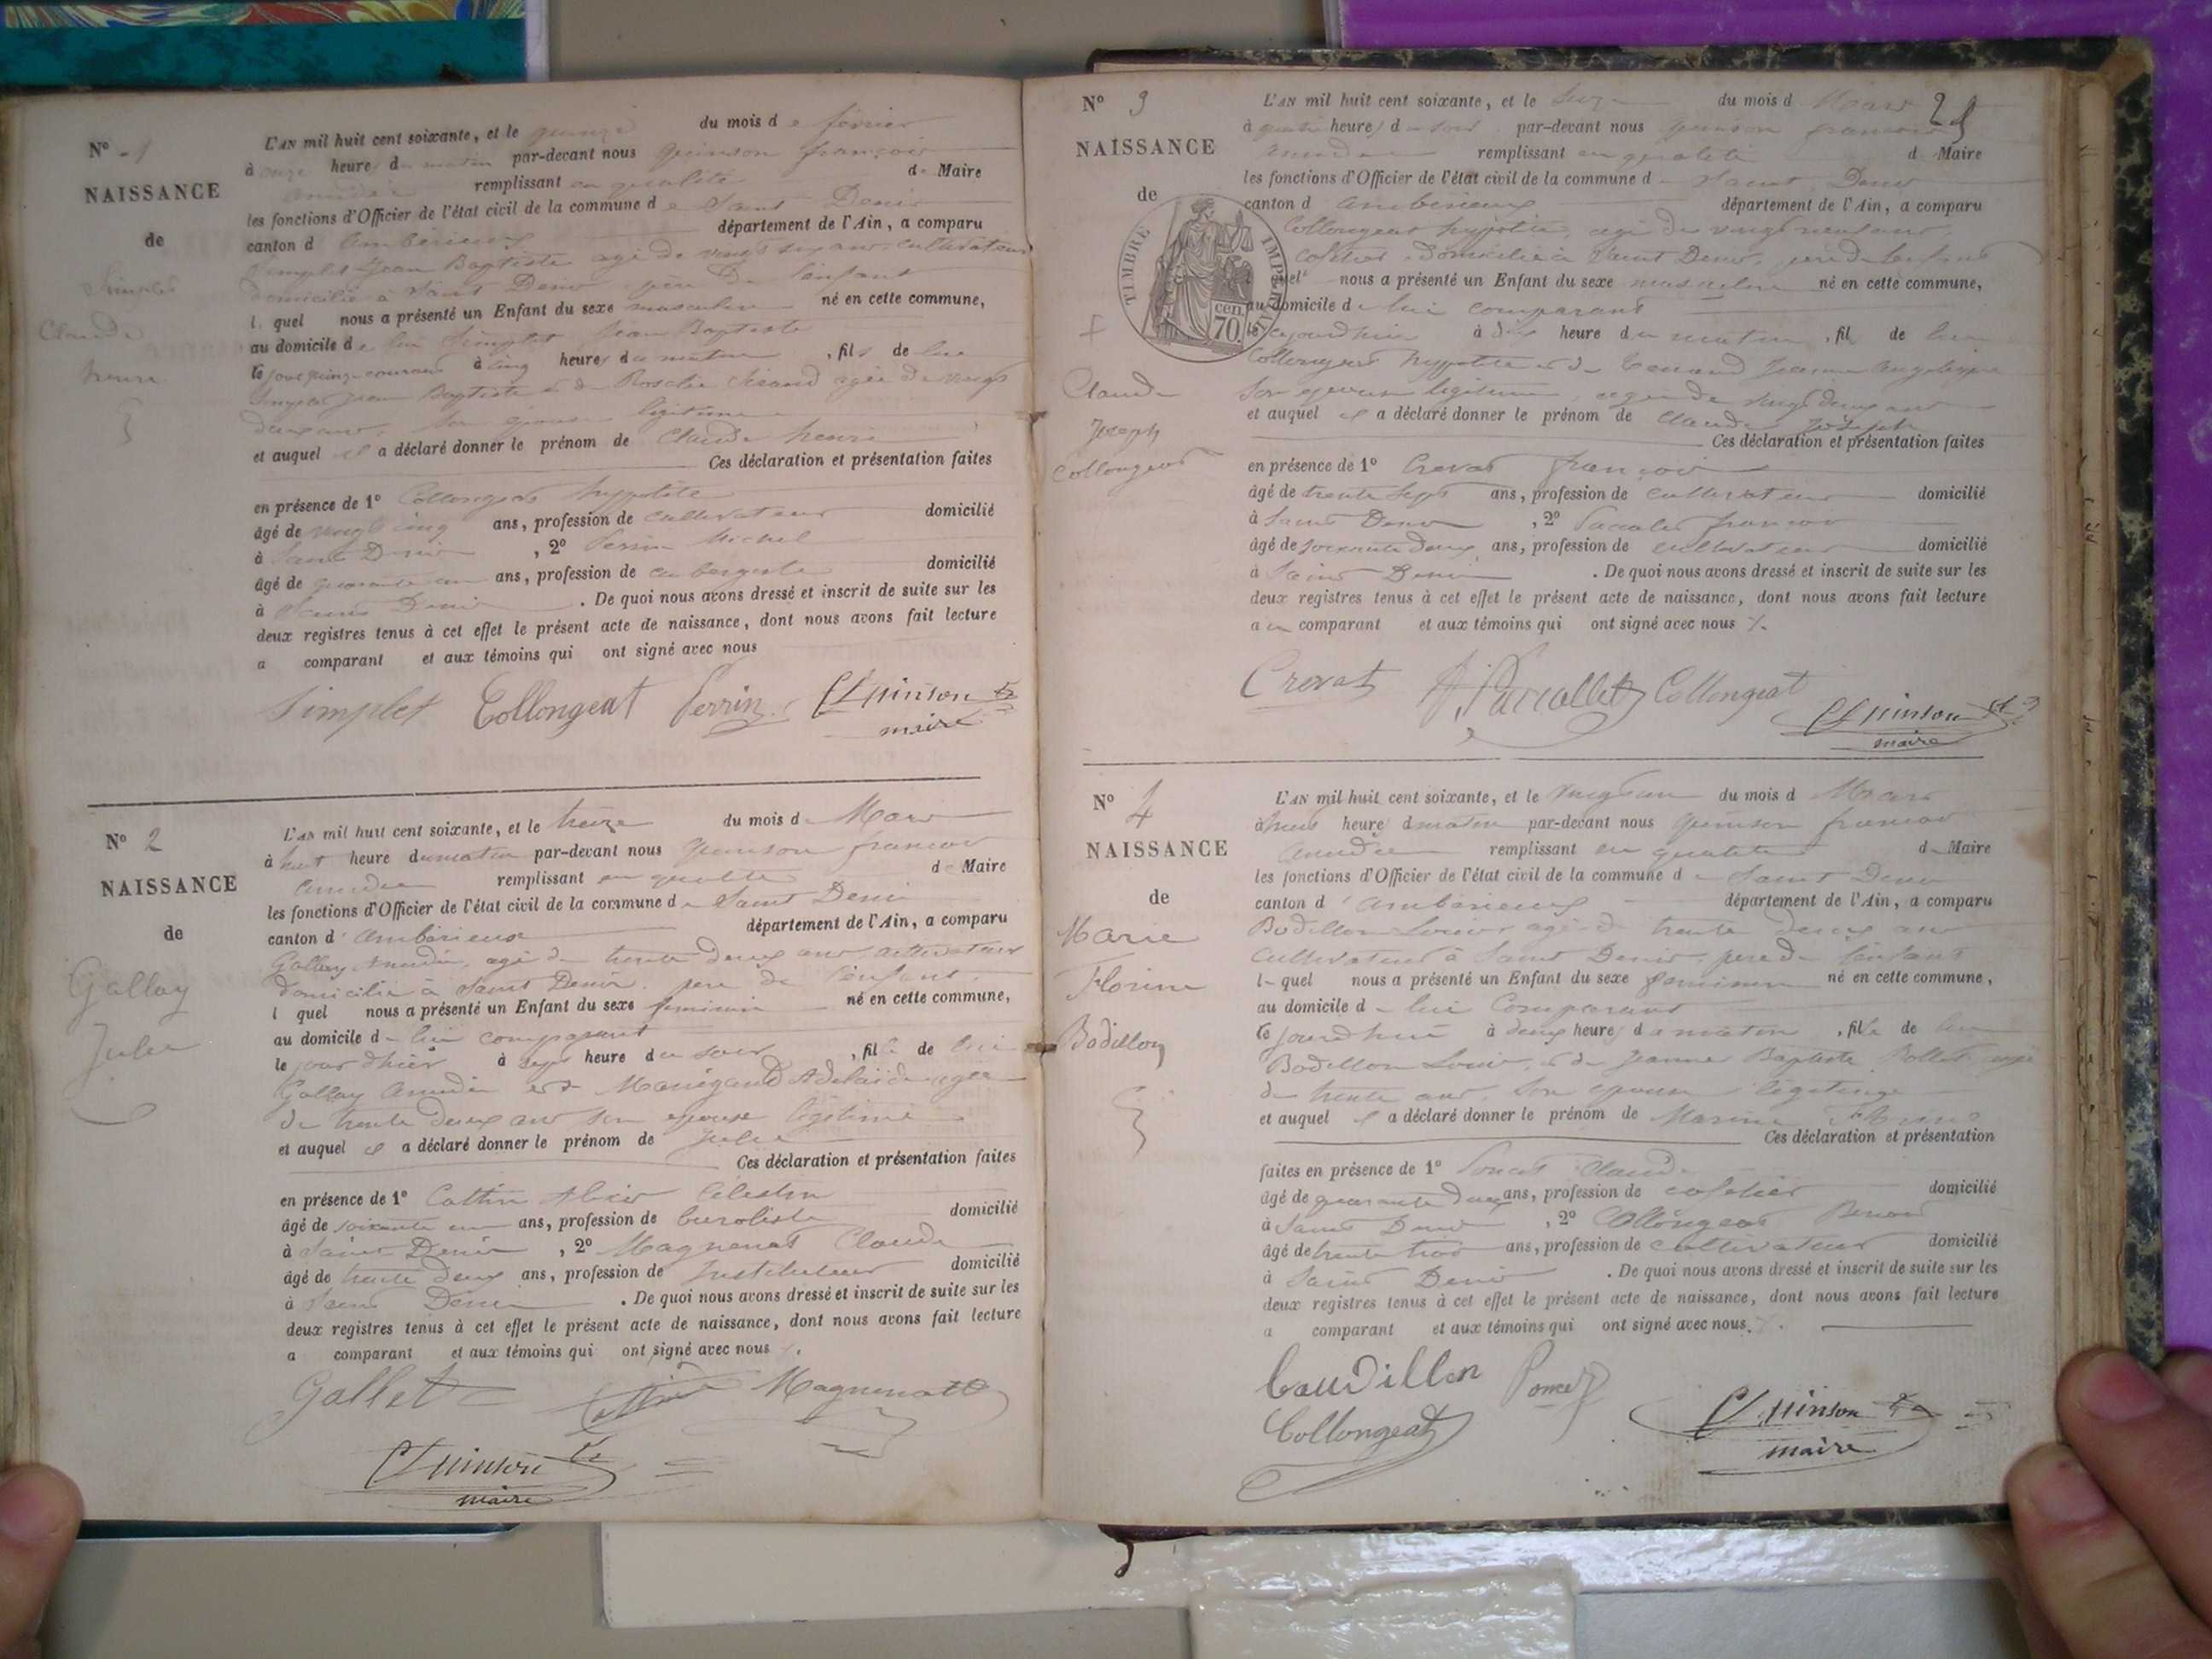 N° 1
NAISSANCE
de
Simplet
Claude
henri
L'AN mil huit cent soixante, et le quinze du mois de février
à onze heure du matin par-devant nous Quinson françois
Amédée remplissant en qualité de Maire
les fonctions d'Officier de l'état civil de la commune de Saint Denis
canton d'Ambérieux département de l'Ain, a comparu
Simplet Jean Baptiste agé de vingt six ans, cultivateur
domicilié à Saint Denis père de l'enfant
l quel nous a présenté un Enfant du sexe masculin né en cette commune,
au domicile de lui Simplet Jean Baptiste
le jour quinze courant à cinq heures du matin, fils de lui
Simplet Jean Baptiste et de Rosalie agée de vingt
deux ans, son épouse légitime
et auquel il a déclaré donner le prénom de Claude henri
Ces déclaration et présentation faites
en présence de 1° Collongeat hyppolite
âgé de vingt cinq ans, profession de cultivateur domicilié
à Saint Denis, 2° Perrin Michel
âgé de quarante un ans, profession de aubergiste domicilié
à Saint Denis. De quoi nous avons dressé et inscrit de suite sur les
deux registres tenus à cet effet le présent acte de naissance, dont nous avons fait lecture
a comparant et aux témoins qui ont signé avec nous
Simplet Collongeat Perrin Quinson
maire
N° 2
NAISSANCE
de
Gallay
Julie
L'AN mil huit cent soixante, et le treize du mois de Mars
à huit heure du matin par-devant nous Quinson francois
Amédée remplissant en qualité de Maire
les fonctions d'Officier de l'état civil de la commune de Saint Denis
canton d'Ambérieux département de l'Ain, a comparu
Gallay Amédée, agé de trente deux ans, cultivateur
domicilié à Saint Denis, père de l'enfant
l quel nous a présenté un Enfant du sexe feminin né en cette commune,
au domicile de lui comparant
le jour d'hier à sept heure du soir, fille de lui
Gallay Amédée et de Adelaïde agée
de trente deux ans son epouse légitime
et auquel il a déclaré donner le prénom de Julie
Ces déclaration et présentation faites
en présence de 1° Cottin Alexis Célestin
âgé de soixante un ans, profession de buraliste domicilié
à Saint Denis, 2° Magnenat Claude
âgé de trente deux ans, profession de Instituteur domicilié
à Saint Denis. De quoi nous avons dressé et inscrit de suite sur les
deux registres tenus à cet effet le présent acte de naissance, dont nous avons fait lecture
a comparant et aux témoins qui ont signé avec nous
Gallet Cottin Magnenat
Quinson
maire
N° 3
NAISSANCE
de
Claude
Joseph
Collongeat
TIMBRE IMPERIAL
70 cen.
L'AN mil huit cent soixante, et le du mois de Mars
à quatre heures du soir par-devant nous Quinson francois
Amédée remplissant en qualité de Maire
les fonctions d'Officier de l'état civil de la commune de Saint Denis
canton d Ambérieux département de l'Ain, a comparu
Collongeat hyppolite, agé de vingt neuf ans,
domicilié à Saint Denis, père de l'enfant
quel nous a présenté un Enfant du sexe masculin né en cette commune,
au domicile de lui comparant
le jourd'hui à dix heure du matin, fil de lui
Collongeat hyppolite et de Jeanne
son epouse légitime, agée de vingt deux ans
et auquel il a déclaré donner le prénom de Claude Joseph
Ces déclaration et présentation faites
en présence de 1° Crevat françois
âgé de trente sept ans, profession de cultivateur domicilié
à Saint Denis, 2° francois
âgé de soixante deux ans, profession de cultivateur domicilié
à Saint Denis. De quoi nous avons dressé et inscrit de suite sur les
deux registres tenus à cet effet le présent acte de naissance, dont nous avons fait lecture
au comparant et aux témoins qui ont signé avec nous
Crevat Collongeat
Quinson
maire
N° 4
NAISSANCE
de
Marie
Florine
Bodillon
L'AN mil huit cent soixante, et le du mois d Mars
à heure du matin par-devant nous Quinson francois
Amédée remplissant en qualité de Maire
les fonctions d'Officier de l'état civil de la commune de Saint Denis
canton d'Ambérieux département de l'Ain, a comparu
Bodillon Louis agé de trente deux ans
cultivateur à Saint Denis, père de l'enfant
le quel nous a présenté un Enfant du sexe feminin né en cette commune,
au domicile de lui Comparant
le jourd'hui à deux heures du matin, fille de lui
Bodillon Louis, et de Jeanne Baptiste Pollet agée
de trente ans, son epouse légitime
et auquel il a déclaré donner le prénom de
Ces déclaration et présentation
faites en présence de 1° Poncet Claude
âgé de quarante deux ans, profession de domicilié
à Saint Denis, 2° Collongeat Benoit
âgé de trente trois ans, profession de cultivateur domicilié
à Saint Denis. De quoi nous avons dressé et inscrit de suite sur les
deux registres tenus à cet effet le présent acte de naissance, dont nous avons fait lecture
a comparant et aux témoins qui ont signé avec nous.
Baudillon Poncet
Collongeat Quinson
maire